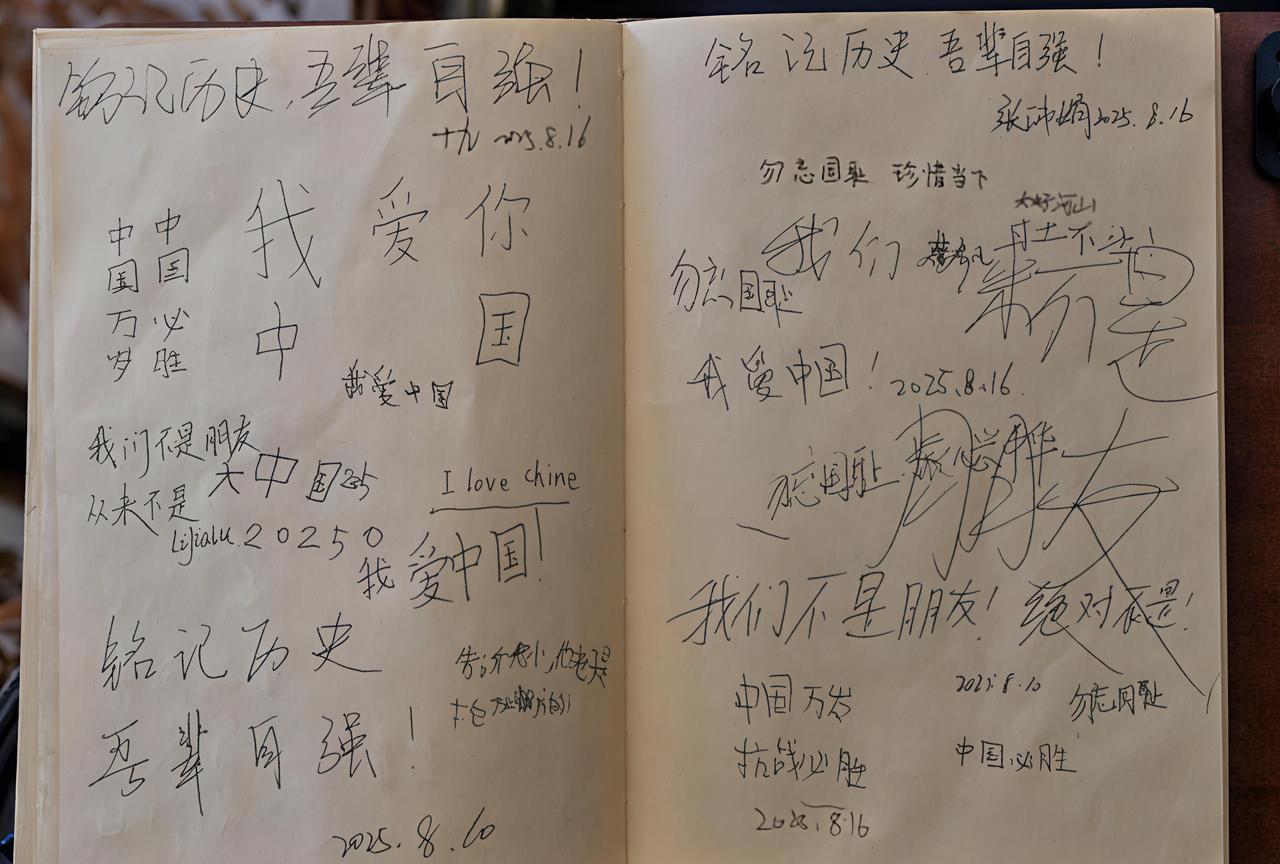 铭记历史,吾辈自强!
十九 2025.8.16
我爱你
中国
中国万岁
中国必胜
我爱中国
我们不是朋友
从来不是
大中国
I love chine
lijialu 20250
我爱中国!
铭记历史
吾辈自强!
2025.8.10
铭记历史 吾辈自强!
2025.8.16
勿忘国耻 珍惜当下
大好河山
寸土不让
我们
勿忘国耻
我爱中国! 2025.8.16
勿忘国耻
朋友
我们不是朋友! 绝对不是!
中国万岁
抗战必胜
2025.8.16
2025.8.10
勿忘国耻
中国必胜